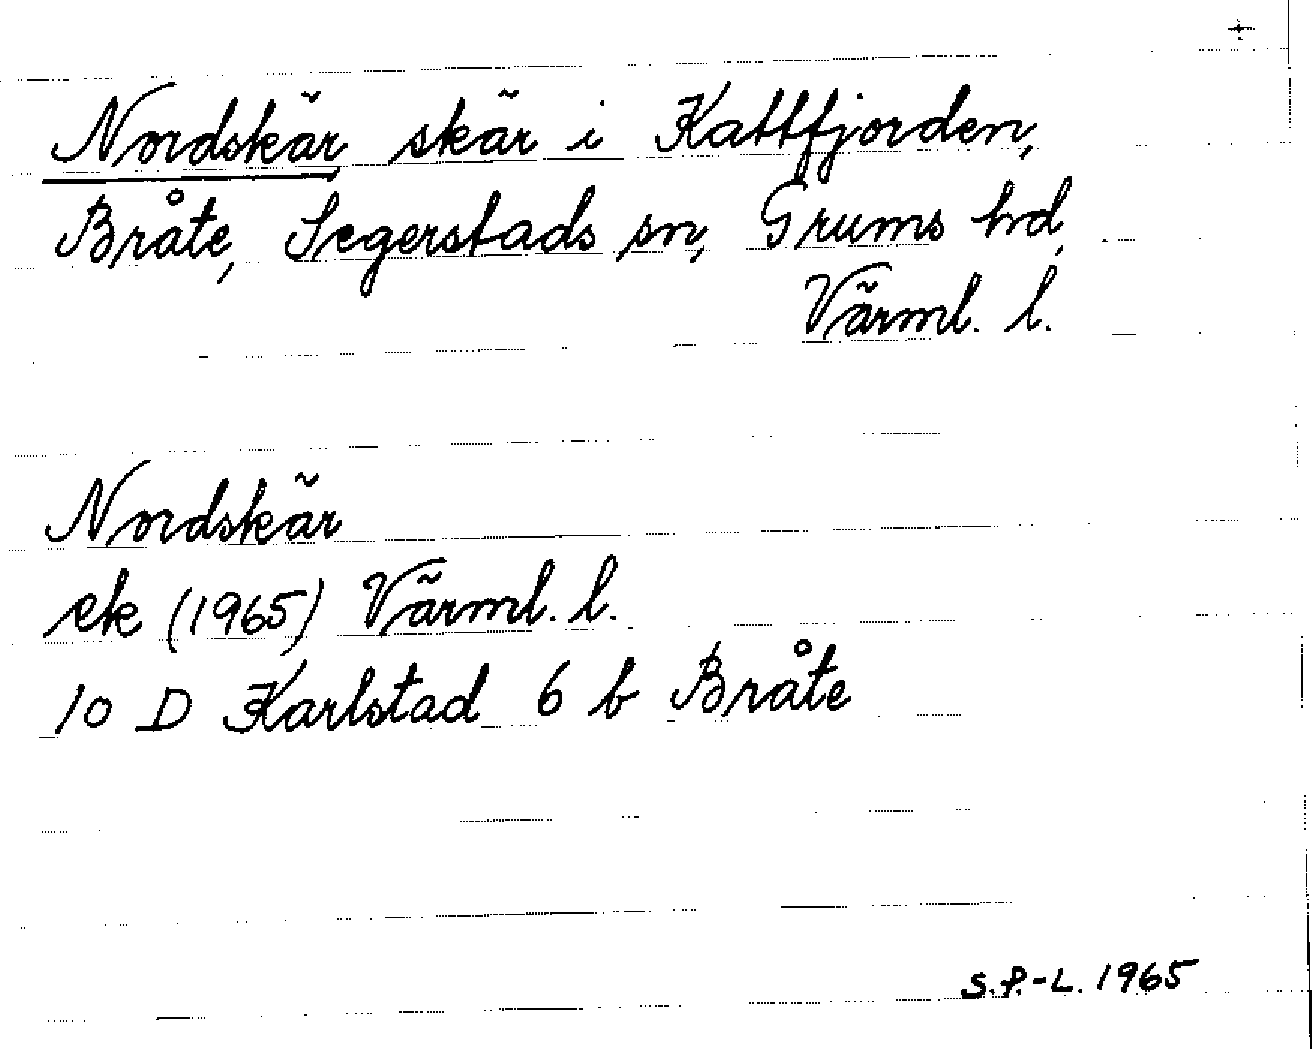 Nordskär skär i Kattfjorden,
Bråte, Segerstads sn, Grums hd,
Värml. l.
Nordskär
ek (1965) Värml. l.
10 D Karlstad 6 b Bråte
S.P.-L. 1965